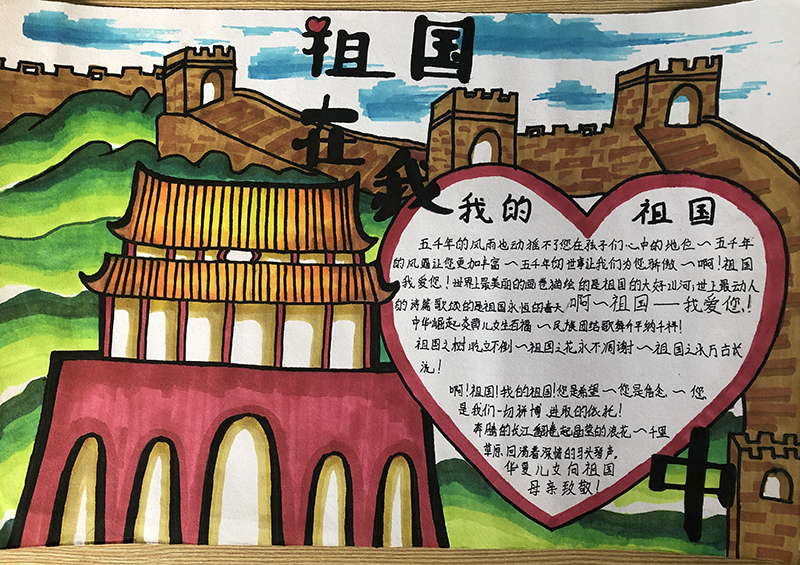 祖国
在我
中
我的 祖国
五千年的风雨也动摇不了您在孩子们心中的地位~五千年
的风霜让您更加丰富~五千年的世事让我们为您骄傲~啊!祖国
我爱您!世界上最美丽的画卷描绘的是祖国的大好山河;世上最动人
的诗篇歌颂的是祖国永恒的春天 啊~祖国——我爱您!
中华崛起炎黄儿女生百福~民族团结歌舞升平纳千祥!
祖国之树屹立不倒~祖国之花永不凋谢~祖国之水万古长
流!
啊!祖国!我的祖国!您是希望~您是信念~您
是我们一切拼搏进取的依托!
奔腾的长江翻卷起层层的浪花~千里
草原回荡着深情的马头琴声。
华夏儿女向祖国
母亲致敬!